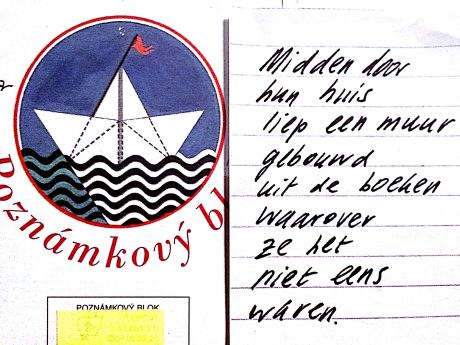 Poznámkový bl
POZNÁMKOVÝ BLOK
Midden door
hun huis
liep een muur
gebouwd
uit de boeken
waarover
ze het
niet eens
waren.